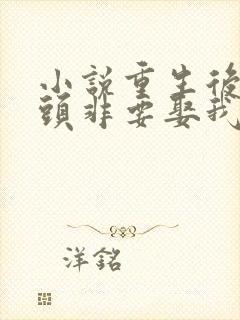 小說重生後
頭非要娶我
洋銘